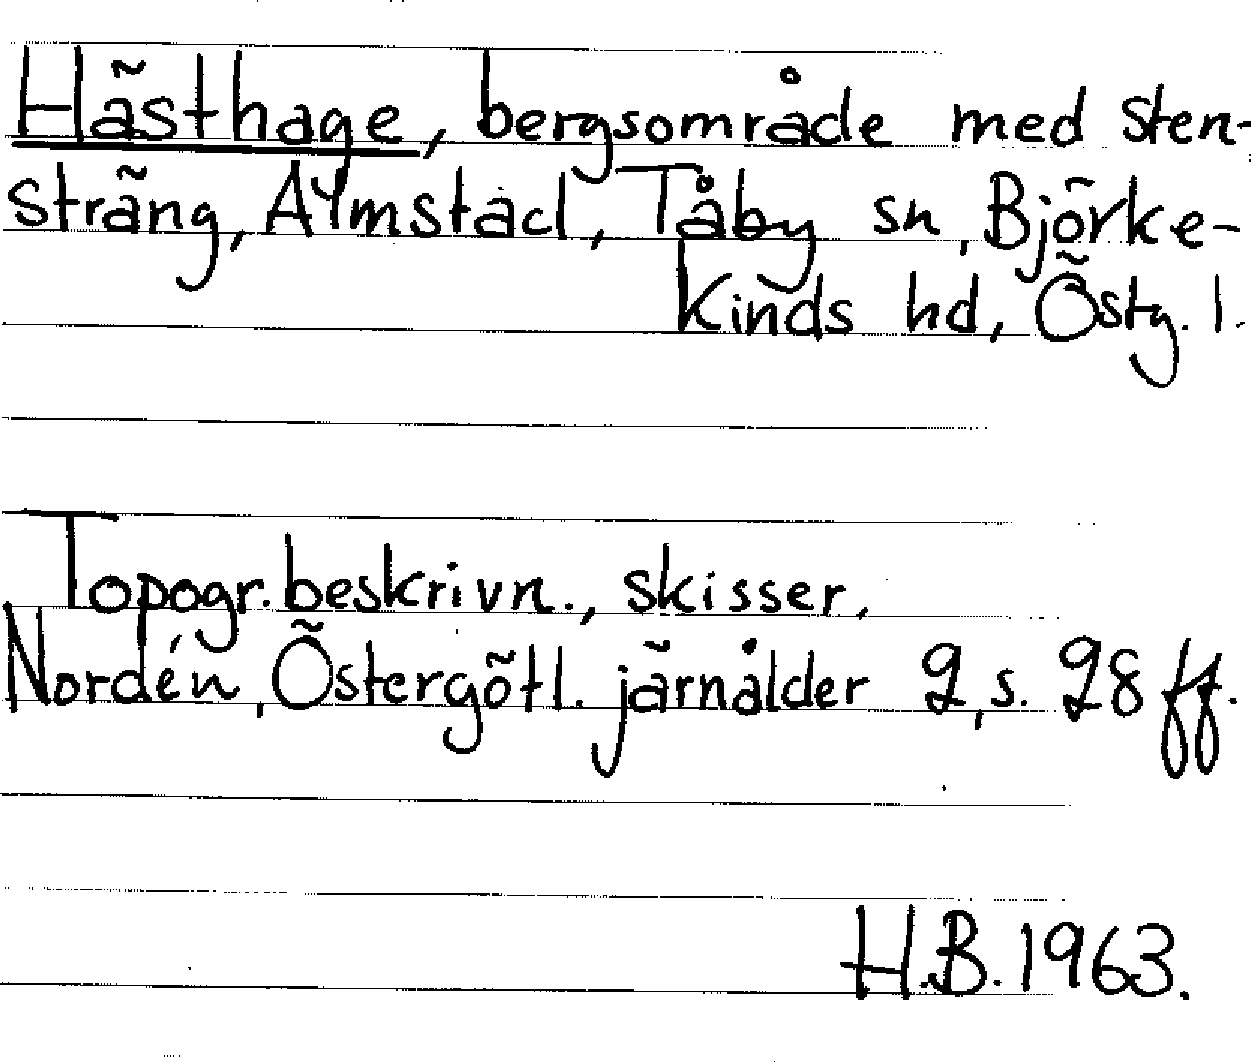 Hästhage, bergsområde med sten-
sträng, Aymstad, Tåby sn, Björke-
kinds hd, Östg. l.
Topogr. beskrivn., skisser,
Nordén, Östergötl. järnålder 2, s. 28 ff.
H.B. 1963.